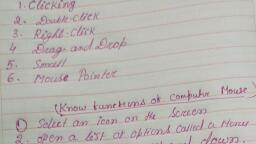 1. Clicking
2. Double-click
3. Right-Click
4 Drag and Drop
5. Scroll
6. Mouse Pointer
(Know functions of computer Mouse)
① Select an Icon on the Screen
2. open a list of options called a Menu
down.